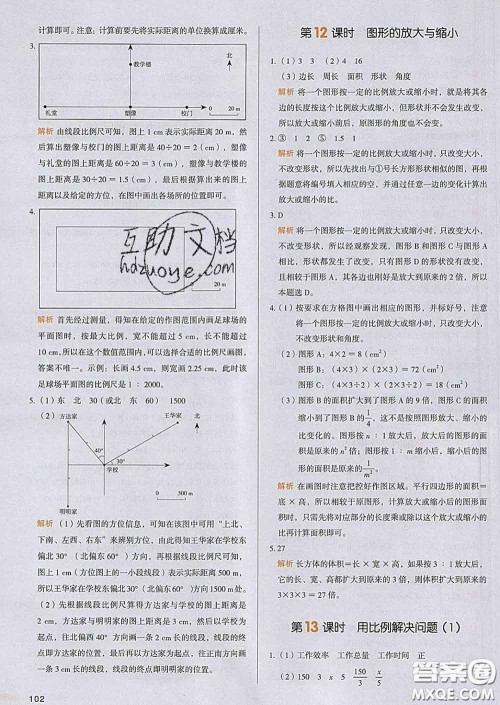 计算即可。注意：计算前要先将实际距离的单位换算成厘米。
3.
北
教学楼
礼堂
塑像
校门
0 20 m
解析 由线段比例尺可知，图上 1 cm 表示实际距离 20 m，然
后算出塑像与校门的图上距离是 40÷20＝2（cm），塑像
与礼堂的图上距离是 60÷20＝3（cm），塑像与教学楼的
图上距离是 30÷20＝1.5（cm），最后根据算出来的图上
距离以及给定的方位，在图中画出各场所的位置即可。
4.
解析 首先经过测量，得知在给定的作图范围内画足球场的
平面图时，按最大比例，宽不能超过 5 cm，长不能超过
10 cm，所以在这个数值范围内，可以随机选择比例尺画图，
答案不唯一。示例：长画 4.5 cm，则宽画 2.25 cm，此时该
足球场平面图的比例尺是 1：2000。
5.（1）东 北 30（或北 东 60） 1500
（2）
方达家
王华家
北
40°
30°
学校
明明家
0 500 m
解析 （1）先看图的方位信息，可知图中的方位可用“上北、
下南、左西、右东”来辨别方位，由此可得王华家在学校东
偏北 30°（北偏东 60°），再根据线段比例尺可知，图上距
离 1 cm（方位图上的一小段线段）表示实际距离 500 m，
所以王华家在学校东偏北 30°（北偏东 60°）方向 1500 m 处。
（2）先根据线段比例尺算出方达家与学校的图上距离是
2 cm，方达家与明明家的图上距离是 3 cm，然后以学校为
起点，往北偏西 40°方向画一条 2 cm 长的线段，线段的终
点即方达家的位置；最后以方达家为起点，往正南方向画
一条 3 cm 长的线段，线段的终点即明明家的位置。
102
第12课时 图形的放大与缩小
1.（1）3 3 （2）4 16
（3）边长 周长 面积 形状 角度
解析 将一个图形按一定的比例放大或缩小时，就是将其各
边的长度按这个比例放大或缩小，但形状并不会发生改变，
所以放大或缩小后，原图形的角度也不会改变。
2.③ ① ② 1.5 1
解析 将一个图形按一定的比例放大或缩小时，只改变大小，
不改变形状，所以先找出与①号长方形形状相似的图，再根
据题意将编号填入空格处，最后通过任意一边的变化计算出
放大或缩小的倍数。
3.D
解析 将一个图形按一定的比例放大或缩小时，只改变大小，
不改变形状，所以经观察发现，图形 B 和图形 C 与图形 A
相比，形状都发生了改变，只有图形 D 的形状没有发生改
变，且相对于图形 A，其各边刚好是放大到原来的 2 倍，所
以本题选 D。
（1）按要求在方格图中画出相应的图形，并标好号，注意
不改变形状和角度。
（2）图形 A：4×2＝8（cm²）
图形 B：（4×3）×（2×3）＝72（cm²）
图形 C：（4×3÷2）×（2×3÷2）＝18（cm²）
（3）图形 B 的面积扩大到了图形 A 的 9 倍，图形 C 的面积
缩小到了图形 B 的 1/4，这一变化的倍数实际是放大、缩小
的比例变化的平方。即按 n：1 放大后，放大后的图形的面
积是放大到原来的 n² 倍，而按 1：m 缩小后，面积是缩小到
原来的 1/m²。
解析 在画图时注意把控好作图区域。平行四边形的面积＝
底 × 高，所以根据画出来的图形，计算出三个图形的面积
时，只要找到它们的底和高，计算出面积再进行对比即可。
5.27
解析 长方体的体积＝长 × 宽 × 高，所以当一个长方体的
长、宽、高都扩大到原来的 3 倍，其体积就扩大到原来的
3×3×3＝27（倍）。
第13课时 用比例解决问题（1）
1.（1）工作效率 工作总量 工作时间 正
（2）150 3 x 5 150/3 x/5
互助文档
hdzuoye.com
答案圈
MXQE.COM